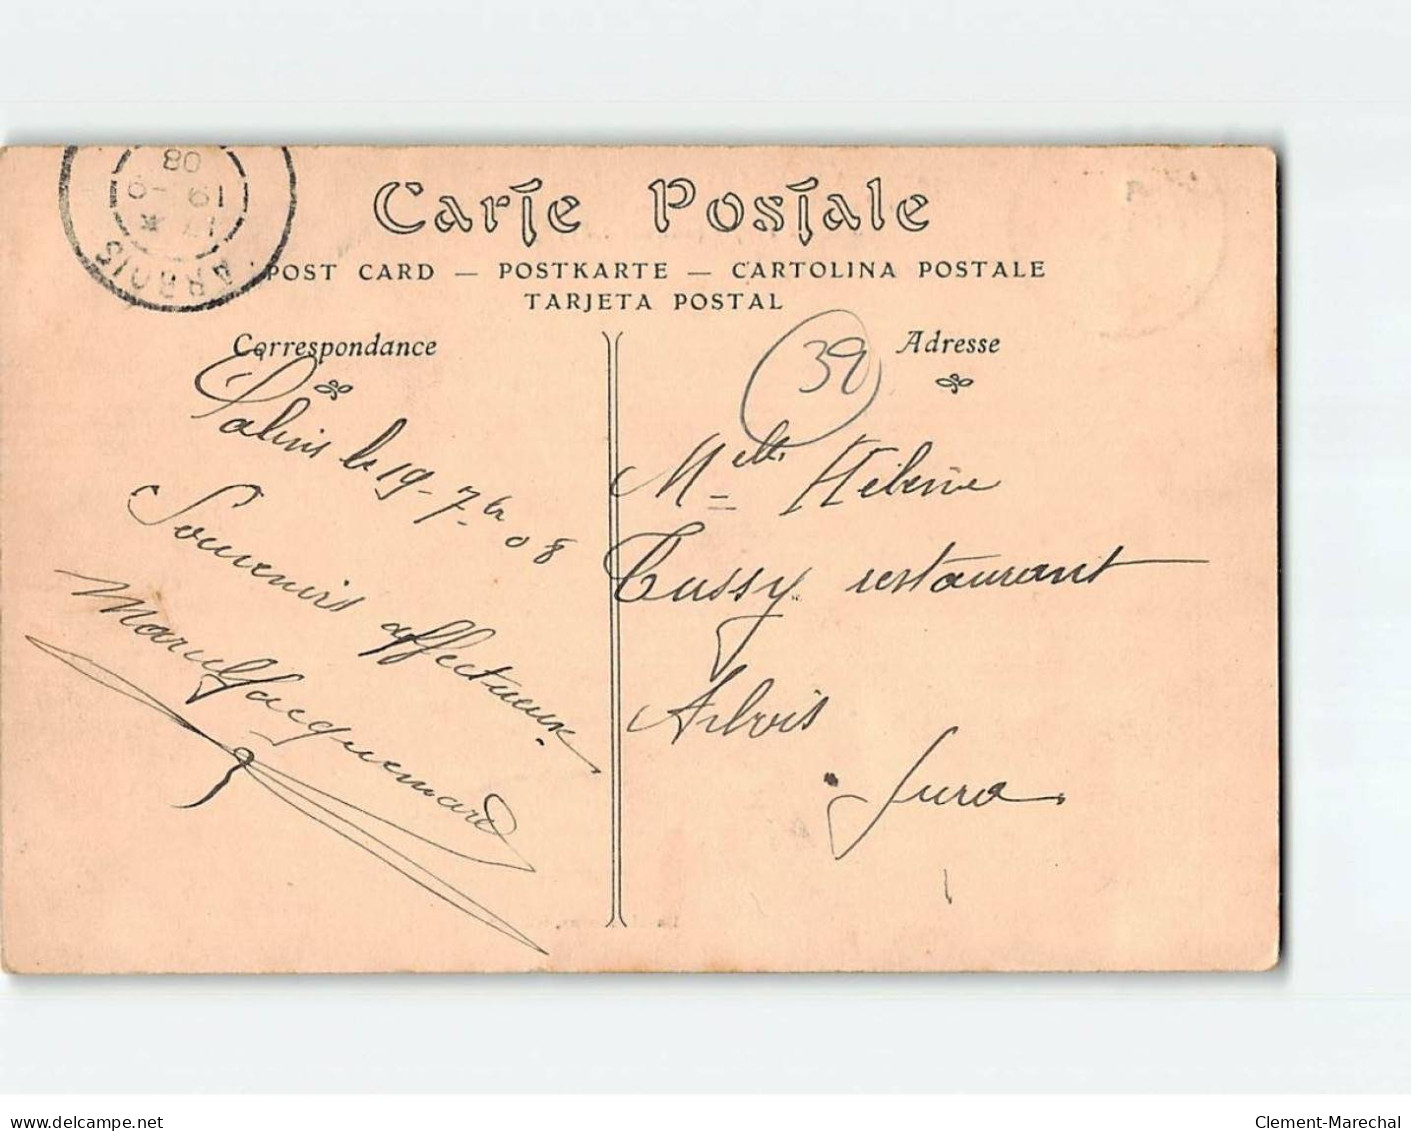 ARBOIS
17 *
19 -9
08
Carte Postale
POST CARD — POSTKARTE — CARTOLINA POSTALE
TARJETA POSTAL
Correspondance
Salins le 19 - 7bre 08
Souvenirs affectueux.
Marcel Jacquemard
Adresse
39
Melle Hélène
Tussy restaurant
Arbois
Jura.
delcampe.net
Clement-Marechal